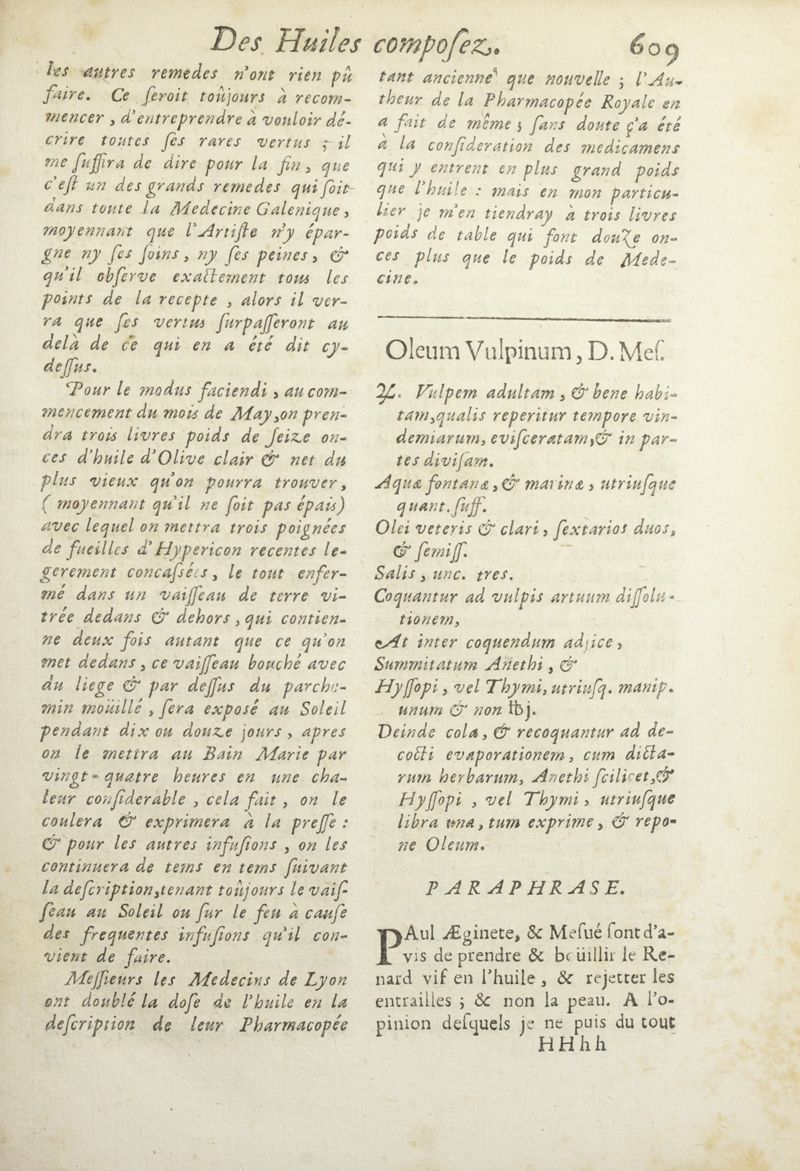 Des Huiles composez. 609
les autres remedes n'ont rien pû
faire. Ce seroit toûjours à recom-
mencer, d'entreprendre à vouloir dé-
crire toutes ses rares vertus ; il
me suffira de dire pour la fin, que
c'est un des grands remedes qui soit
dans toute la Medecine Galenique,
moyennant que l'Artiste n'y épar-
gne ny ses soins, ny ses peines, &
qu'il observe exactement tous les
points de la recepte, alors il ver-
ra que ses vertus surpasseront au
delà de ce qui en a été dit cy-
dessus.
Pour le modus faciendi, au com-
mencement du mois de May, on pren-
dra trois livres poids de seize on-
ces d'huile d'Olive clair & net du
plus vieux qu'on pourra trouver,
( moyennant qu'il ne soit pas épais)
avec lequel on mettra trois poignées
de fueilles d'Hypericon recentes le-
gerement concassées, le tout enfer-
mé dans un vaisseau de terre vi-
trée dedans & dehors, qui contien-
ne deux fois autant que ce qu'on
met dedans, ce vaisseau bouché avec
du liege & par dessus du parche-
min moüillé, sera exposé au Soleil
pendant dix ou douze jours, apres
on le mettra au Bain Marie par
vingt-quatre heures en une cha-
leur considerable, cela fait, on le
coulera & exprimera à la presse :
& pour les autres infusions, on les
continuera de tems en tems suivant
la description, tenant toûjours le vais-
seau au Soleil ou sur le feu à cause
des frequentes infusions qu'il con-
vient de faire.
Messieurs les Medecins de Lyon
ont doublé la dose de l'huile en la
description de leur Pharmacopée
tant ancienne que nouvelle ; l'Au-
theur de la Pharmacopée Royale en
a fait de même ; sans doute ç'a été
à la consideration des medicamens
qui y entrent en plus grand poids
que l'huile : mais en mon particu-
lier je m'en tiendray à trois livres
poids de table qui font douze on-
ces plus que le poids de Mede-
cine.
Oleum Vulpinum, D. Mes.
♃. Vulpem adultam, & bene habi-
tam, qualis reperitur tempore vin-
demiarum, evisceratam, & in par-
tes divisam.
Aquæ fontanæ, & marinæ, utriusque
quant. suff.
Olei veteris & clari, sextarios duos,
& semiss.
Salis, unc. tres.
Coquantur ad vulpis artuum dissolu-
tionem,
At inter coquendum adjice,
Summitatum Anethi, &
Hyssopi, vel Thymi, utriusq. manip.
unum & non ℔j.
Deinde cola, & recoquantur ad de-
cocti evaporationem, cum dicta-
rum herbarum, Anethi scilicet, &
Hyssopi, vel Thymi, utriusque
libra una, tum exprime, & repo-
ne Oleum.
PARAPHRASE.
PAul Æginete, & Mesué sont d'a-
vis de prendre & boüillir le Re-
nard vif en l'huile, & rejetter les
entrailles ; & non la peau. A l'o-
pinion desquels je ne puis du tout
HHhh